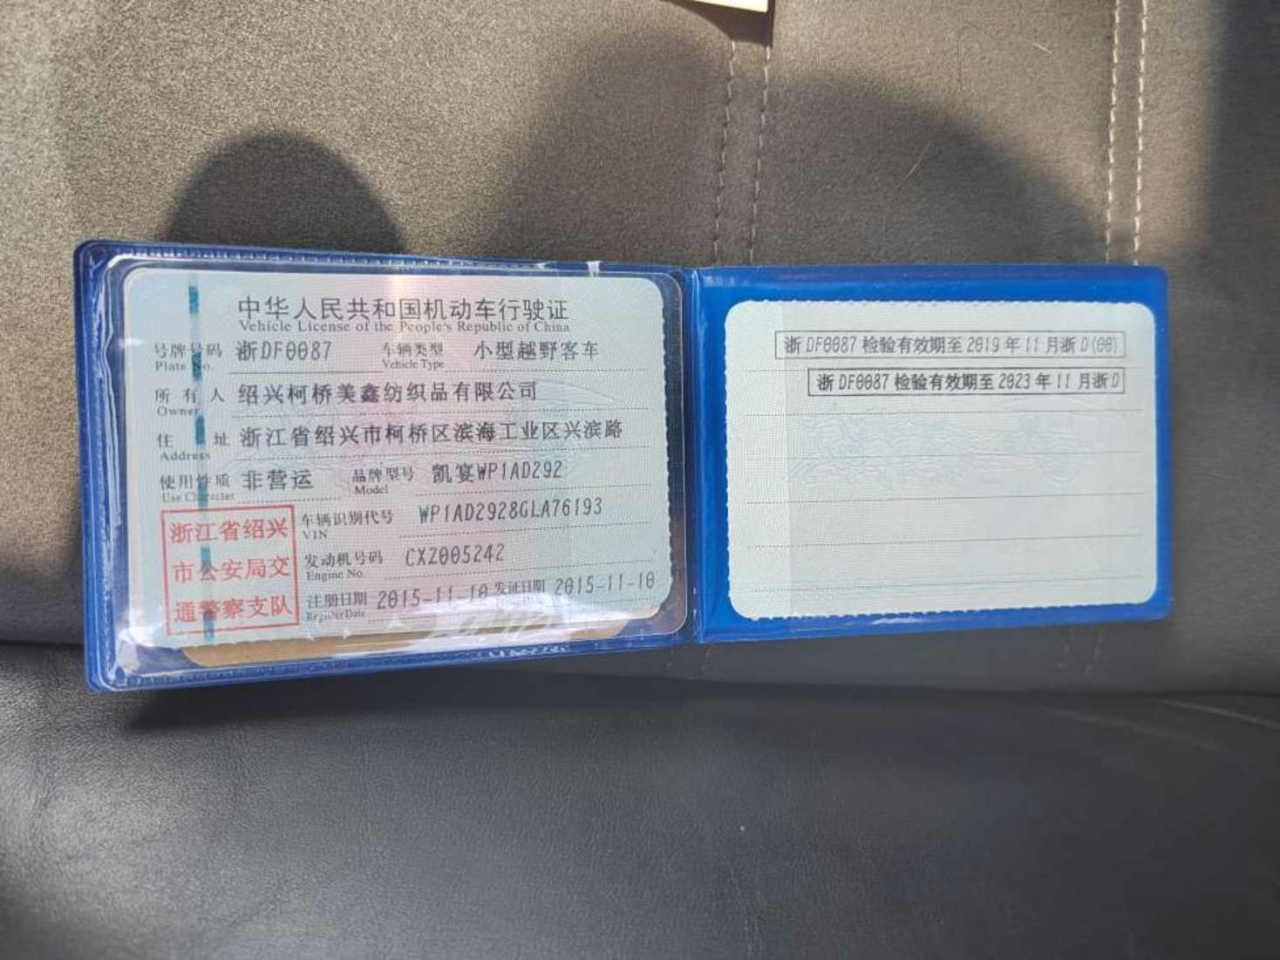 中华人民共和国机动车行驶证
Vehicle License of the People's Republic of China
号牌号码 浙DF0087 车辆类型 小型越野客车
Plate No. Vehicle Type
所有人 绍兴柯桥美鑫纺织品有限公司
Owner
住址 浙江省绍兴市柯桥区滨海工业区兴滨路
Address
使用性质 非营运 品牌型号 凯宴WP1AD292
Use Character Model
浙江省绍兴
市公安局交
通警察支队
车辆识别代号 WP1AD2928GLA76193
VIN
发动机号码 CXZ005242
Engine No.
注册日期 2015-11-10 发证日期 2015-11-10
Register Date Issue Date
浙DF0087检验有效期至2019年11月浙D(00)
浙DF0087检验有效期至2023年11月浙D